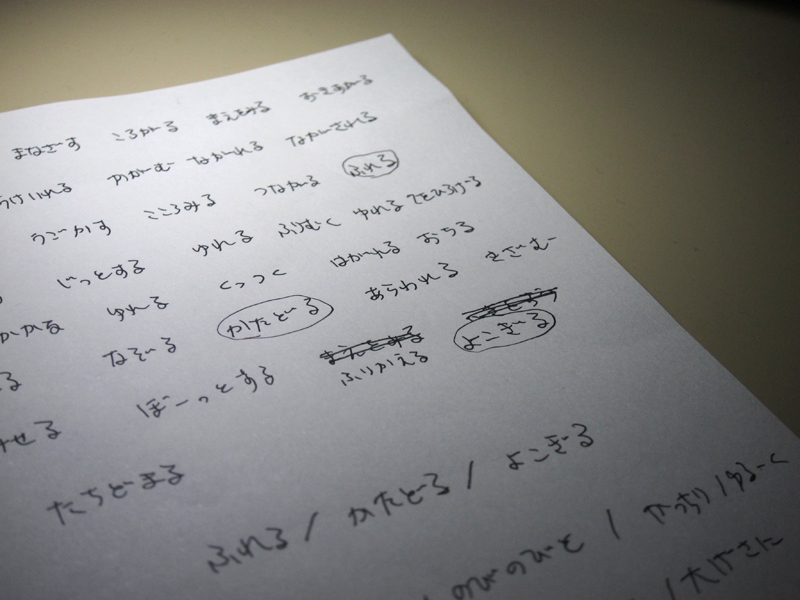 まなざす ころがる まえをみる おきあがる
うけいれる かがむ ながれる ながされる
うごかす こころみる つながる ふれる
じっとする ゆれる ふりむく ゆれる てをひろげる
かかる ゆれる くっつく はがれる おちる
る なぞる かたどる あらわれる きざむ
せる ぼーっとする ふりかえる よこぎる
たちどまる
ふれる / かたどる / よこぎる
のびのびと / きっちり / ゆるーく
/ 大げさに